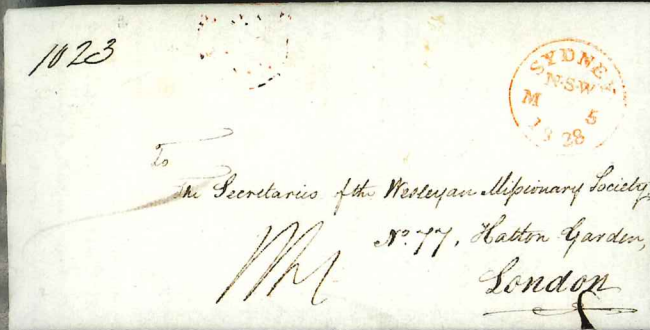 1023
SYDNEY
N·S·W
M 5
1828
To
The Secretaries of the Wesleyan Missionary Society
No. 77, Hatton Garden,
London